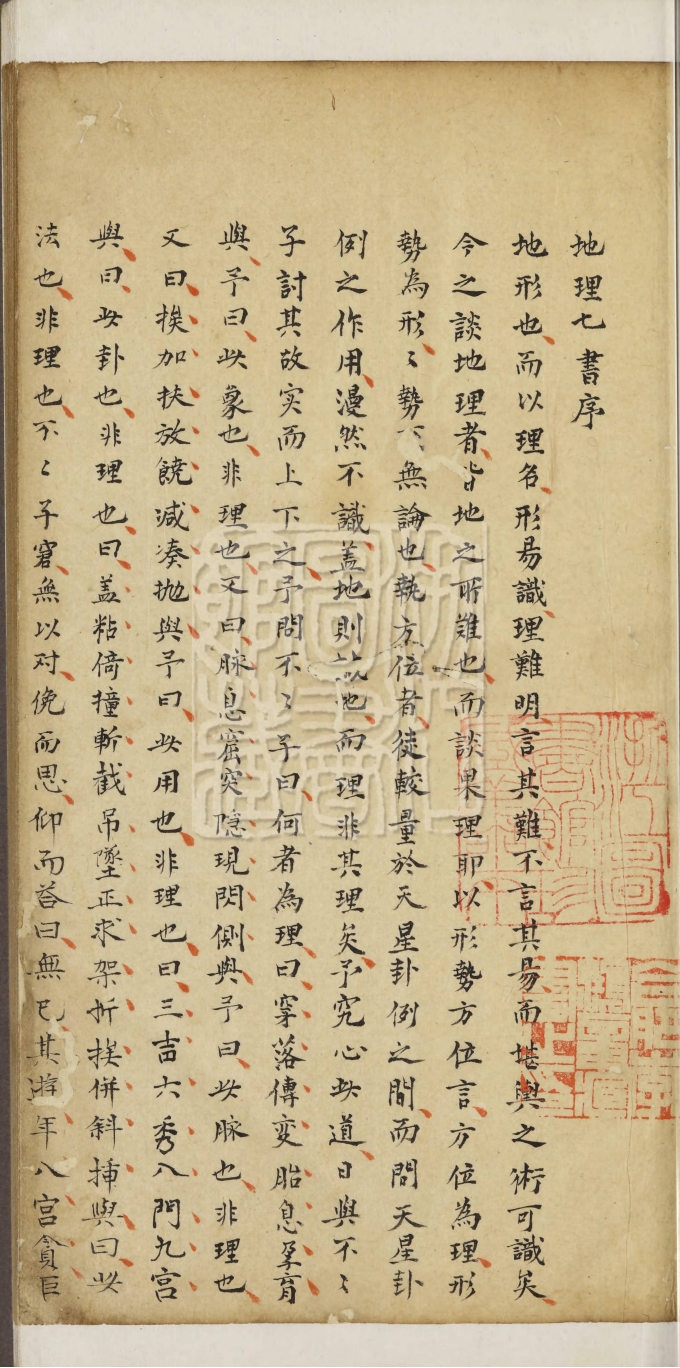 地理七書序
地形也而以理名形易識理難明言其難不言其易而堪輿之術可識矣
今之談地理者皆地之所難也而談果理耶以形勢方位言方位為理形
勢為形〻勢下無論也執方位者徒較量於天星卦例之間而問天星卦
例之作用漫然不識盖地則誠地而理非其理矣予究心此道日與不〻
子討其故实而上下之予問不〻子曰何者為理曰穿落傳变胎息孕育
與予曰此象也非理也又曰脉息窟突隱現閃側與予曰此脉也非理也
又曰挨加扶放饒减凑抛與予曰此用也非理也曰三吉六秀八門九宫
與曰此卦也非理也曰盖粘倚撞斬截吊墜正求架折挨併斜揷與曰此
法也非理也不〻子窘無以对俛而思仰而答曰無已其遊年八宫貪巨